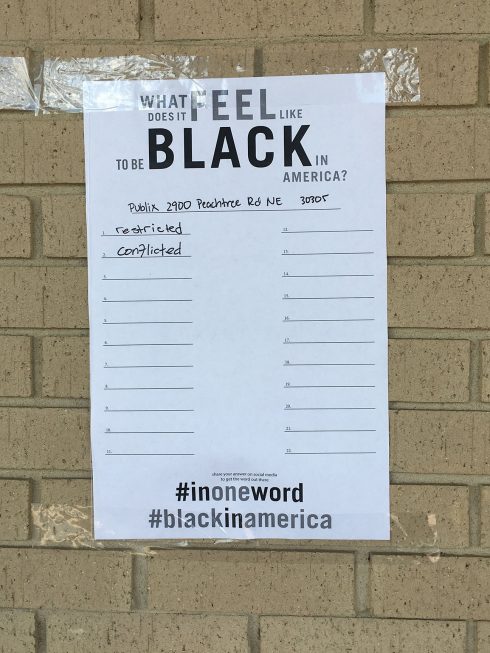 WHAT FEEL LIKE
DOES IT
TO BE BLACK IN
AMERICA?
Publix 2900 Peachtree Rd NE 30305
1. restricted
2. conflicted
3.
4.
5.
6.
7.
8.
9.
10.
11.
12.
13.
14.
15.
16.
17.
18.
19.
20.
21.
22.
share your answer on social media
to get the word out there
#inoneword
#blackinamerica